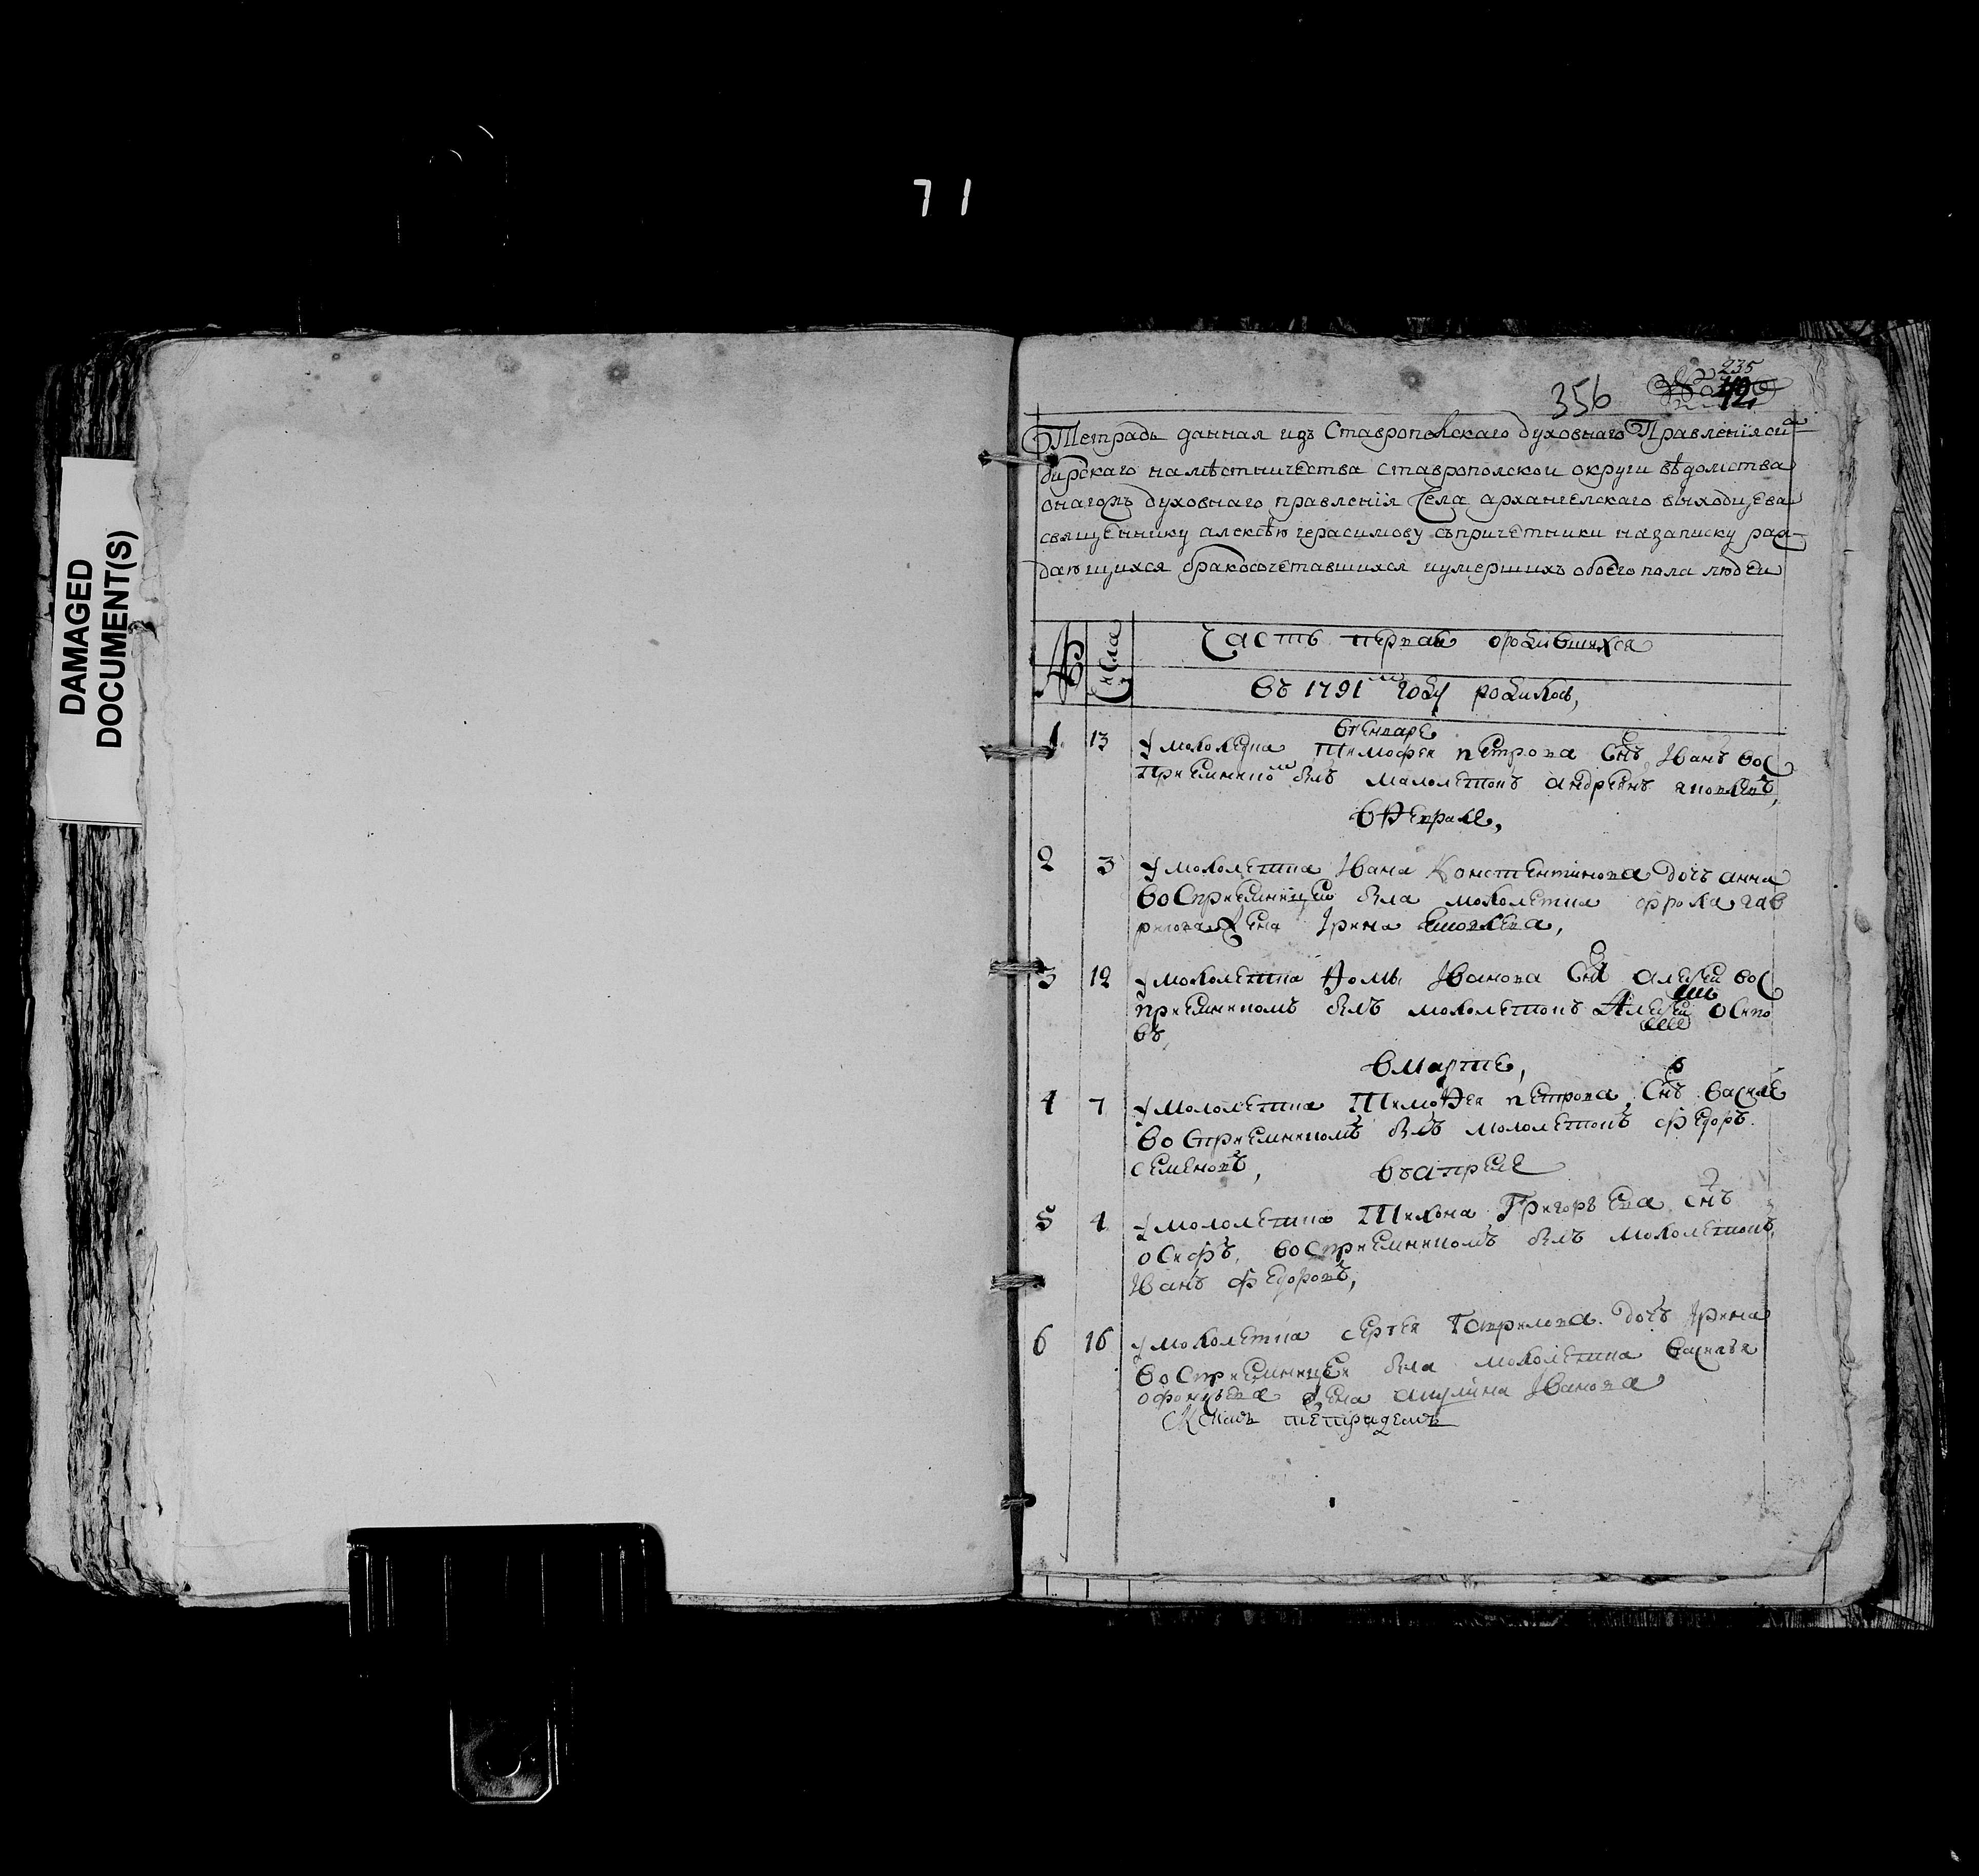 71
DAMAGED
DOCUMENT(S)
235
356
Тетрадь данная изъ Ставрополскаго духовнаго Правленія сим
бирскаго намѣстничества ставрополской округи вѣдомства
онагожъ духовнаго правленія Села архангелскаго выходцева
священнику алексѣю герасимову съпричетники назаписку раж
дающихся бракосочетавшихся иумершихъ обоего пола людей
№ числа
часть первая ородившихся
въ 1791м году родилось,
вгенваре
1 13 У молокчина Тимофея петрова Снъ Иванъ вос
приемником былъ малолеткъ андреянъ яковлевъ,
вфеврале,
2 3 У Ивана Констентинова дочь анна
восприемницею была фрола гав
рилова жена Ирина яковлева,
3 12 У Фомы Иванова Снъ алексей вос
приемникомъ былъ Алексей осипо
въ
вмарте,
4 7 У Тимофея петрова Снъ василе
восприемникомъ былъ федоръ
семеновъ, въапреле
5 4 У Тихона Григорьева снъ
осифъ, восприемникомъ былъ
Иванъ федоровъ,
6 16 У сергея Гаврилова дочь Ирина
восприемницеи была василья
жена акулина Иванова